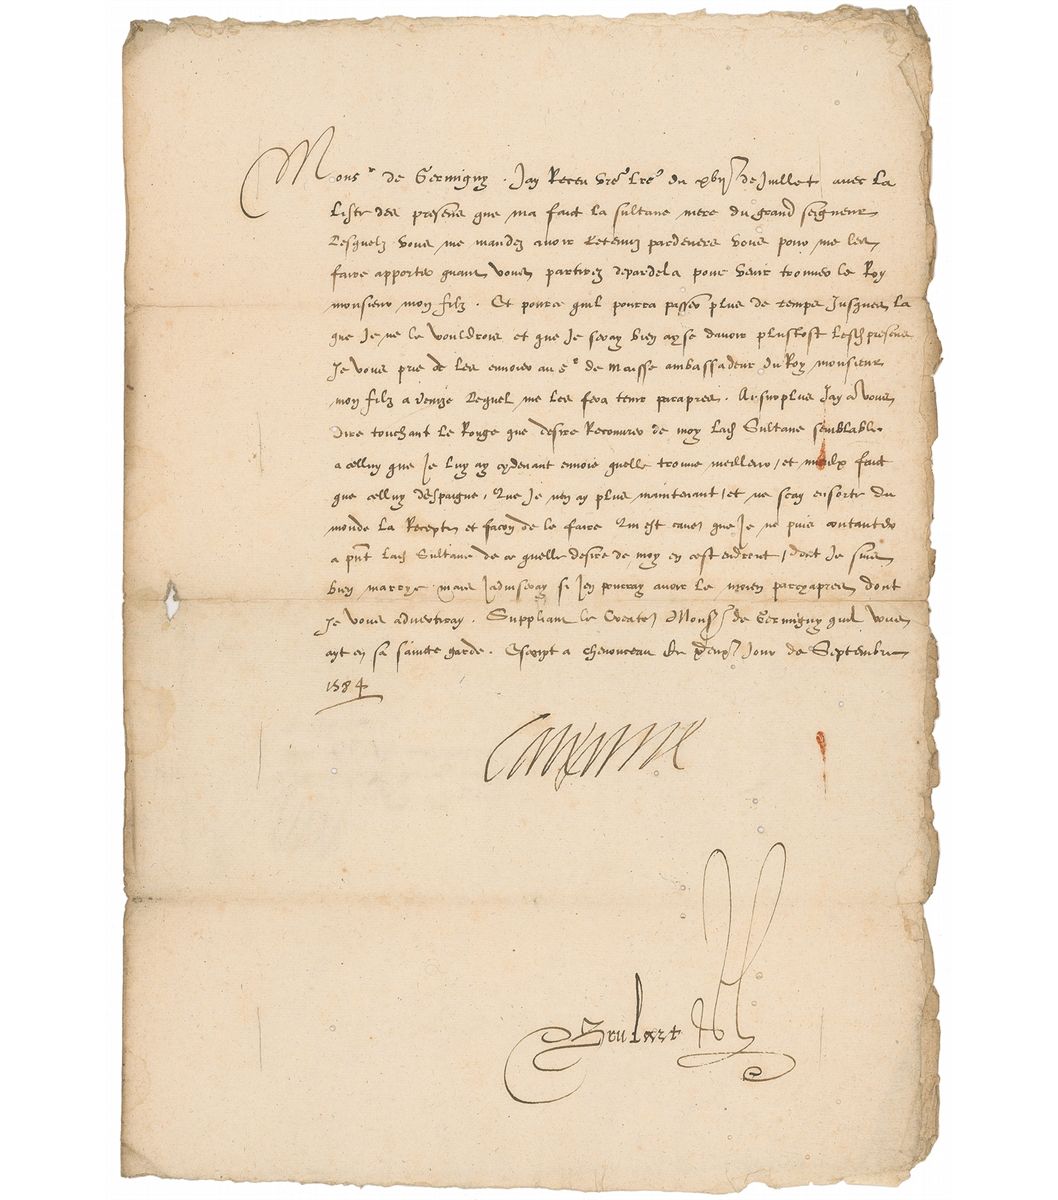 Monsr de Germigny. Jay Receu vre lre du xvije de Juillet avec la
liste des presens que ma faict la sultane mere du grand seigneur
Lesquelz vous me mandez avoir Retenuz pardevers vous pour me les
faire apporter quant vous partirez depardela pour venir trouver le Roy
monsieur mon filz. Et pource quil pourra passer plus de temps Jusques la
que Je ne le vouldrois et que Je seray bien ayse davoir plustost lesd presens
Je vous prie de les envoier au sr de Maisse ambassadeur du Roy monsieur
mon filz a Venize Lequel me les fera tenir parapres. Au surplus Jay a vous
dire touchant le Rouge que desire Recouvrer de moy lad Sultane semblable
a celluy que Je luy ay cydevant envoié quelle trouve meilleur, et mieulx faict
que celluy despaigne, Que Je nen ay plus maintenant, et ne scay ensorte du
monde la Recepte et facon de le faire Qui est cause que Je ne puis contanter
a pnt lad Sultane de ce quelle desire de moy en cest endroit, dont Je suis
bien marrye mais Jadviseray si Jen pourray avoir le moien parcyapres dont
Je vous advertiray. Suppliant le Createur Monsr de Germigny quil vous
ayt en sa saincte garde. Escript a chenonceau le jour de Septembre
1584
Caterine
Brulart